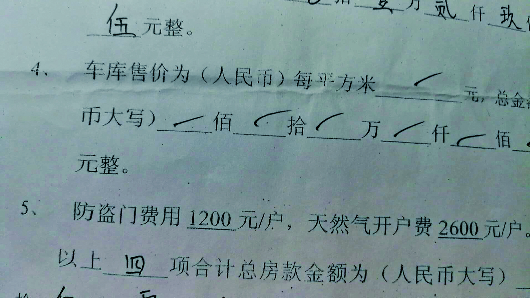 拾 壹 万 贰 仟 玖
伍 元整。
4、 车库售价为（人民币）每平方米 / 元，总金
币大写） / 佰 / 拾 / 万 / 仟 / 佰
元整。
5、 防盗门费用 1200 元/户，天然气开户费 2600 元/户。
以上 四 项合计总房款金额为（人民币大写）